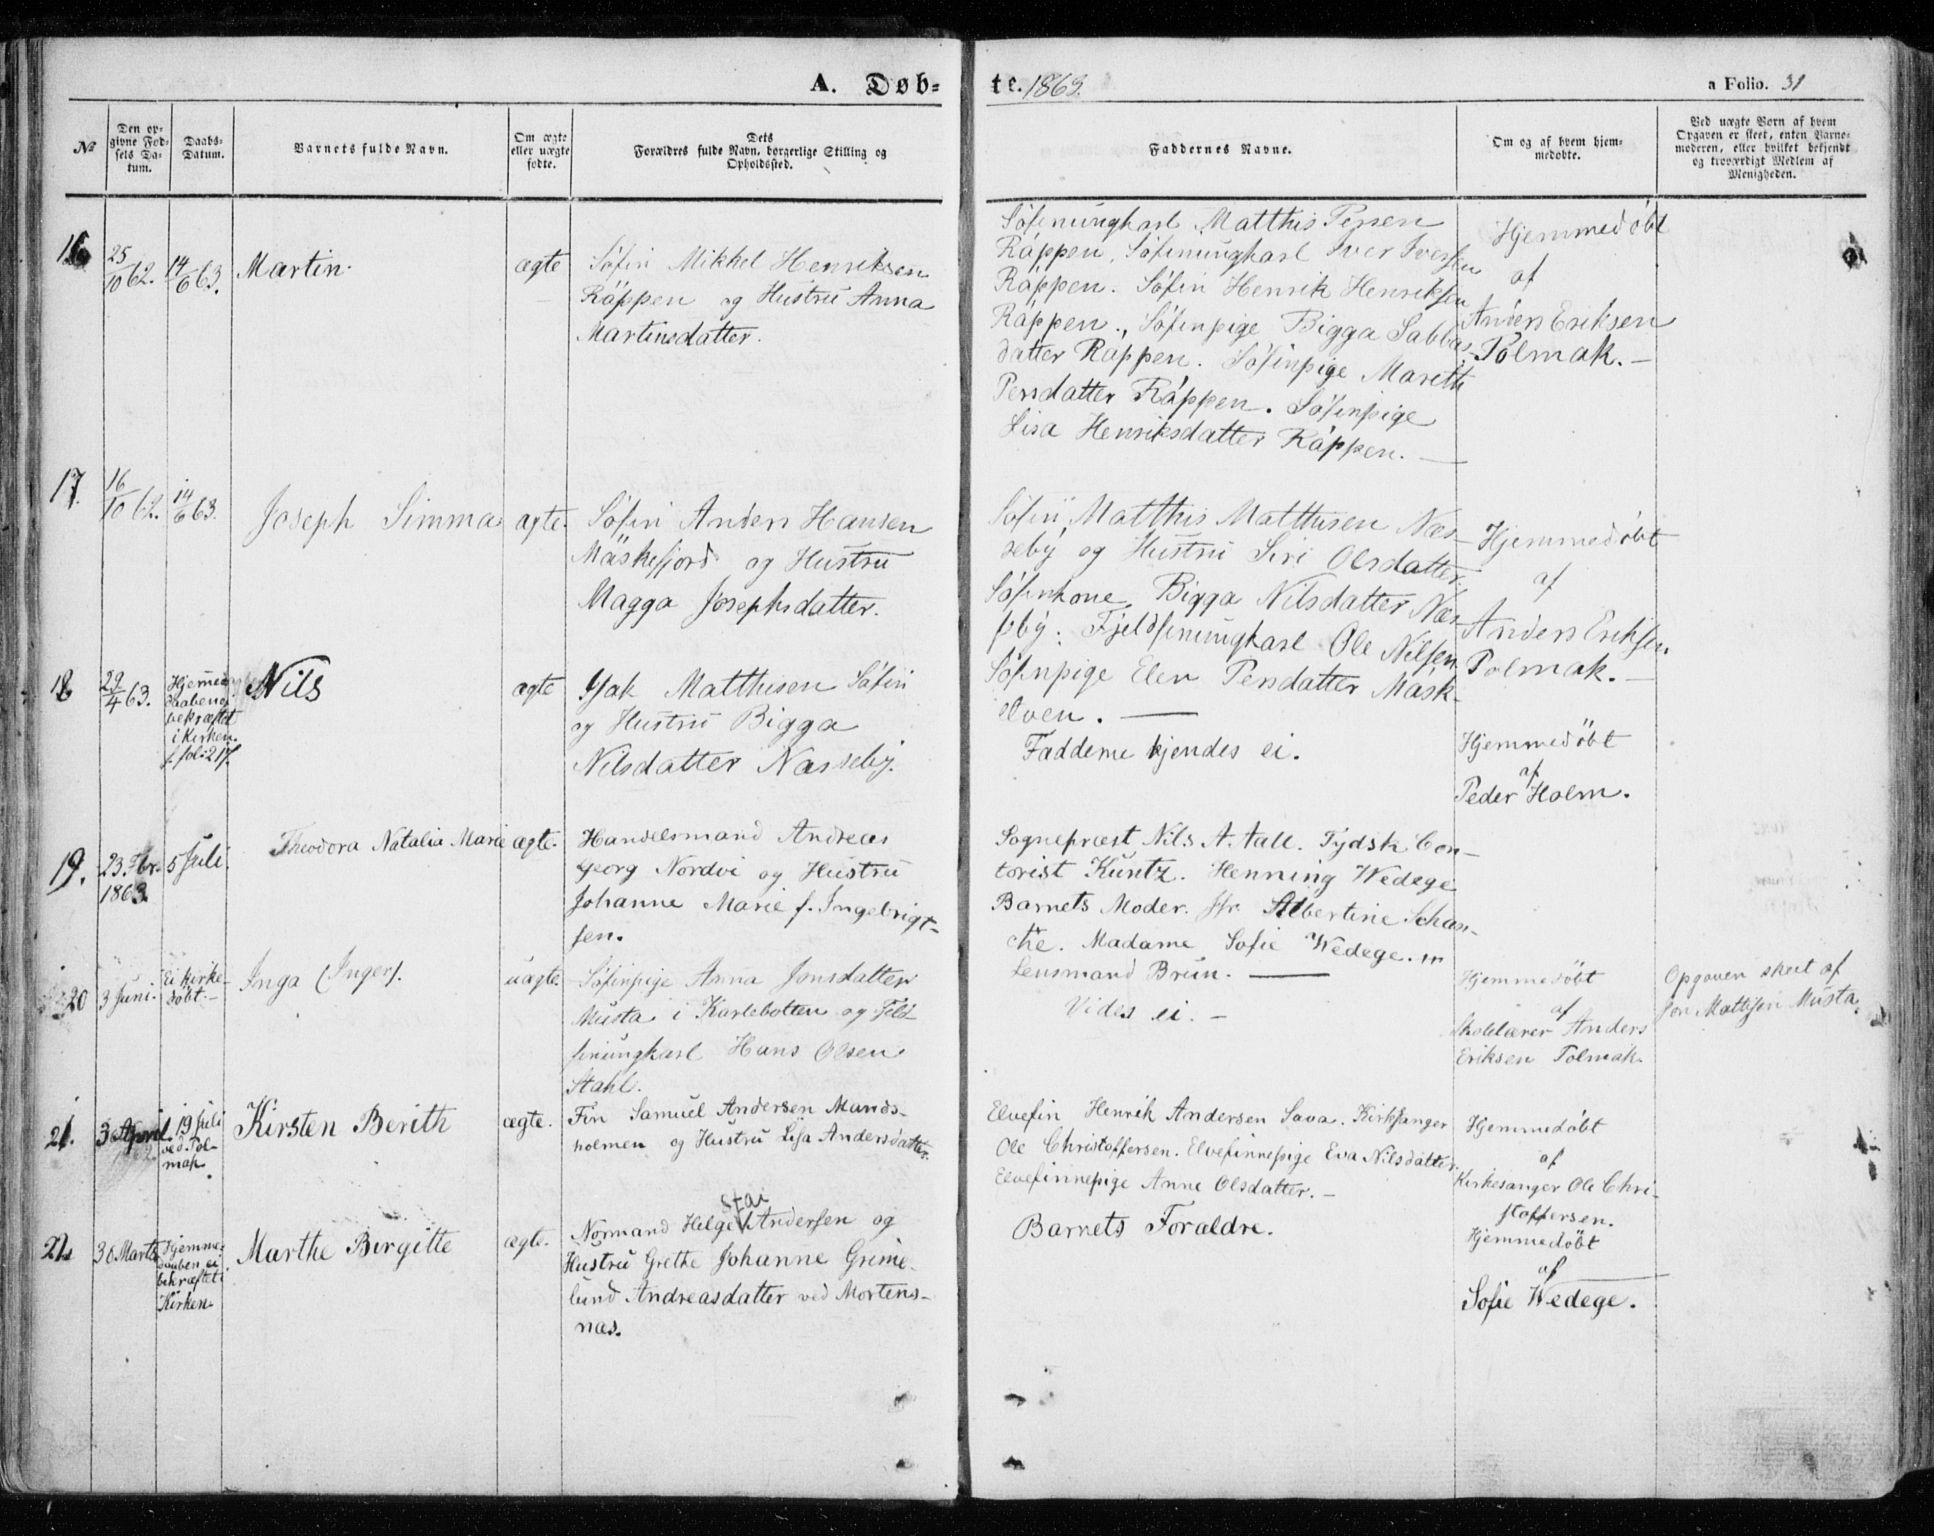 A. Døb-
te. 1863.
a Folio. 31
№
Den opgivne Fødsels Datum.
Daabs-Datum.
Barnets fulde Navn.
Om ægte eller uægte fødte.
Dets Forældres fulde Navn, borgerlige Stilling og Opholdssted.
Faddernes Navne.
Om og af hvem hjemmedøbte.
Ved uægte Børn af hvem Opgaven er skeet, enten Barnemoderen, eller hvilket bekjendt og troværdigt Medlem af Menigheden.
16
25/10 62.
14/6 63.
Martin.
ægte
Söfin Mikkel Henriksen
Räppen og Hustru Anna
Martinsdatter.
Söfinungkarl Matthis Persen
Räppen, Söfinungkarl Iver Iversen
Räppen. Söfin Henrik Henriksen
Räppen., Söfinpige Bigga Sabbas-
datter Räppen. Söfinpige Marith
Persdatter Räppen. Söfinpige
Lisa Henriksdatter Räppen. —
Hjemmedöbt
af
Anders Eriksen
Polmak. —
17.
16/10 62.
14/6 63.
Joseph Simma
ægte.
Söfin Anders Hansen
Mäskefjord og Hustru
Magga Josephsdatter.
Söfin Matthis Matthisen Næs-
seby og Hustru Siri Olsdatter.
Söfinkone Bigga Nilsdatter Næs-
seby. Fjeldfinungkarl Ole Nilsen
Söfinpige Elen Persdatter Mäsk-
elven. —
Hjemmedöbt
af
Anders Eriksen
Polmak. —
18
29/4 63.
Hjemme-
daaben
bekræftet
i Kirken.
f. fol: 217.
Nils
ægte
Isak Matthisen Söfin
og Hustru Bigga
Nilsdatter Næsseby.
Fadderne kjendes ei.
Hjemmedöbt
af
Peder Holm.
19.
23. Fbr.
1863.
5 Juli.
Theodora Natalia Marie
ægte.
Handelsmand Andreas
Georg Nordvi og Hustru
Johanne Marie f. Ingebrigt-
sen.
Sognepræst Nils A. Aall. Tydsk Con-
torist Kuntz. Henning Wedege
Barnets Moder. Jfr. Albertine Schan-
che. Madame Sofie Wedege.
Lensmand Brun. —
20
3 Juni.
Ei kirke-
döbt. —
Inga (Inger).
uægte.
Söfinpige Anna Jonsdatter
Musta i Karlebotten og Fjeld-
finungkarl Hans Olsen
Stahl.
Vides ei. —
Hjemmedöbt
af
Skolelærer Anders
Eriksen Polmak.
Opgaven skeet af
Jon Mathisen Musta.
21.
3 April
1862.
19 Juli
ved Pol-
mak.
Kirsten Berith
ægte.
Fin Samuel Andersen Mands-
holmen og Hustru Lisa Andersdatter.
Elvefin Henrik Andersen Sava. Kirksanger
Ole Christoffersen. Elvefinnepige Eva Nilsdatter.
Elvefinnepige Anne Olsdatter. —
Hjemmedöbt
af
Kirkesanger Ole Chri-
stoffersen.
22
30 Marts
Hjemme-
daaben ei
bekræftet i
Kirken.
Marthe Birgitte
ægte.
Stai
Normand Helge Andersen og
Hustru Grethe Johanne Grime-
lund Andreasdatter ved Mortens-
næs.
Barnets Forældre.
Hjemmedöbt
af
Sofie Wedege.